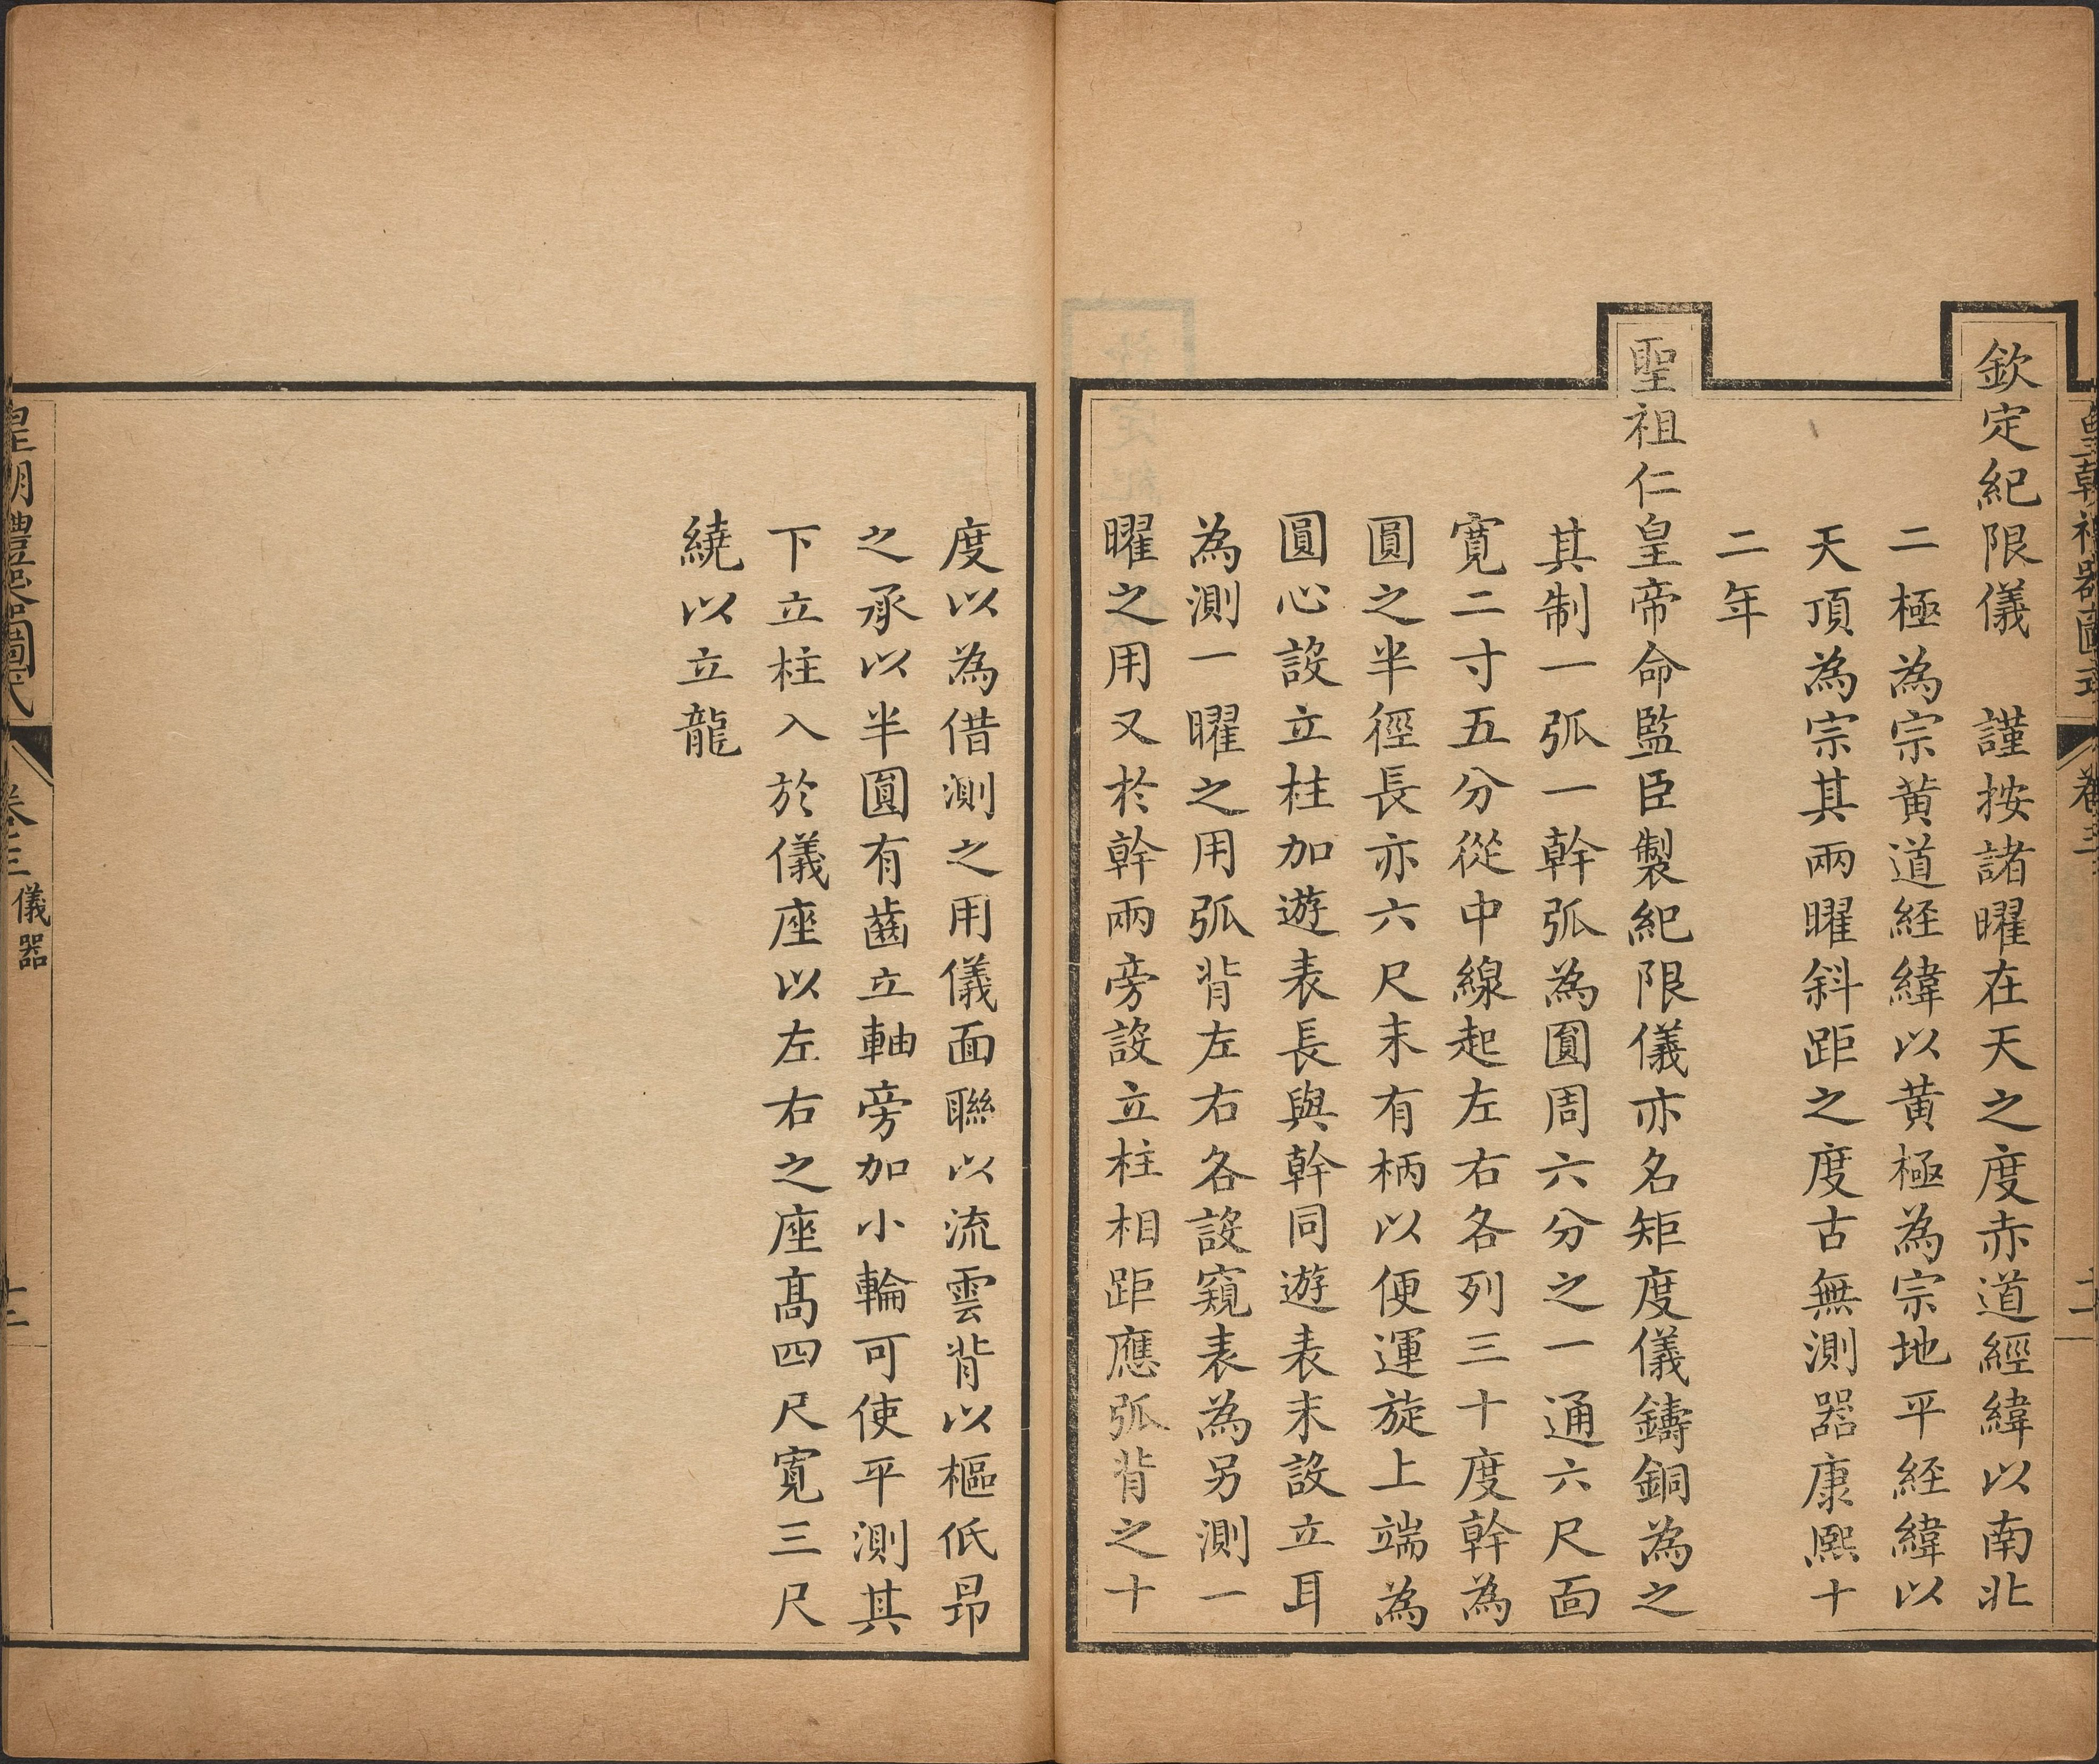 皇朝禮器圖式 卷三
欽定紀限儀 謹按諸曜在天之度赤道經緯以南北
二極為宗黃道経緯以黃極為宗地平経緯以
天頂為宗其兩曜斜距之度古無測器康熙十
二年
聖祖仁皇帝命監臣製紀限儀亦名矩度儀鑄銅為之
其制一弧一幹弧為圓周六分之一通六尺面
寬二寸五分從中線起左右各列三十度幹為
圓之半徑長亦六尺末有柄以便運旋上端為
圓心設立柱加遊表長與幹同遊表末設立耳
為測一曜之用弧背左右各設窺表為另測一
曜之用又於幹兩旁設立柱相距應弧背之十
度以為借測之用儀面聯以流雲背以樞低昻
之承以半圓有齒立軸旁加小輪可使平測其
下立柱入於儀座以左右之座高四尺寬三尺
繞以立龍
皇朝禮器圖式 卷三 儀器 十三